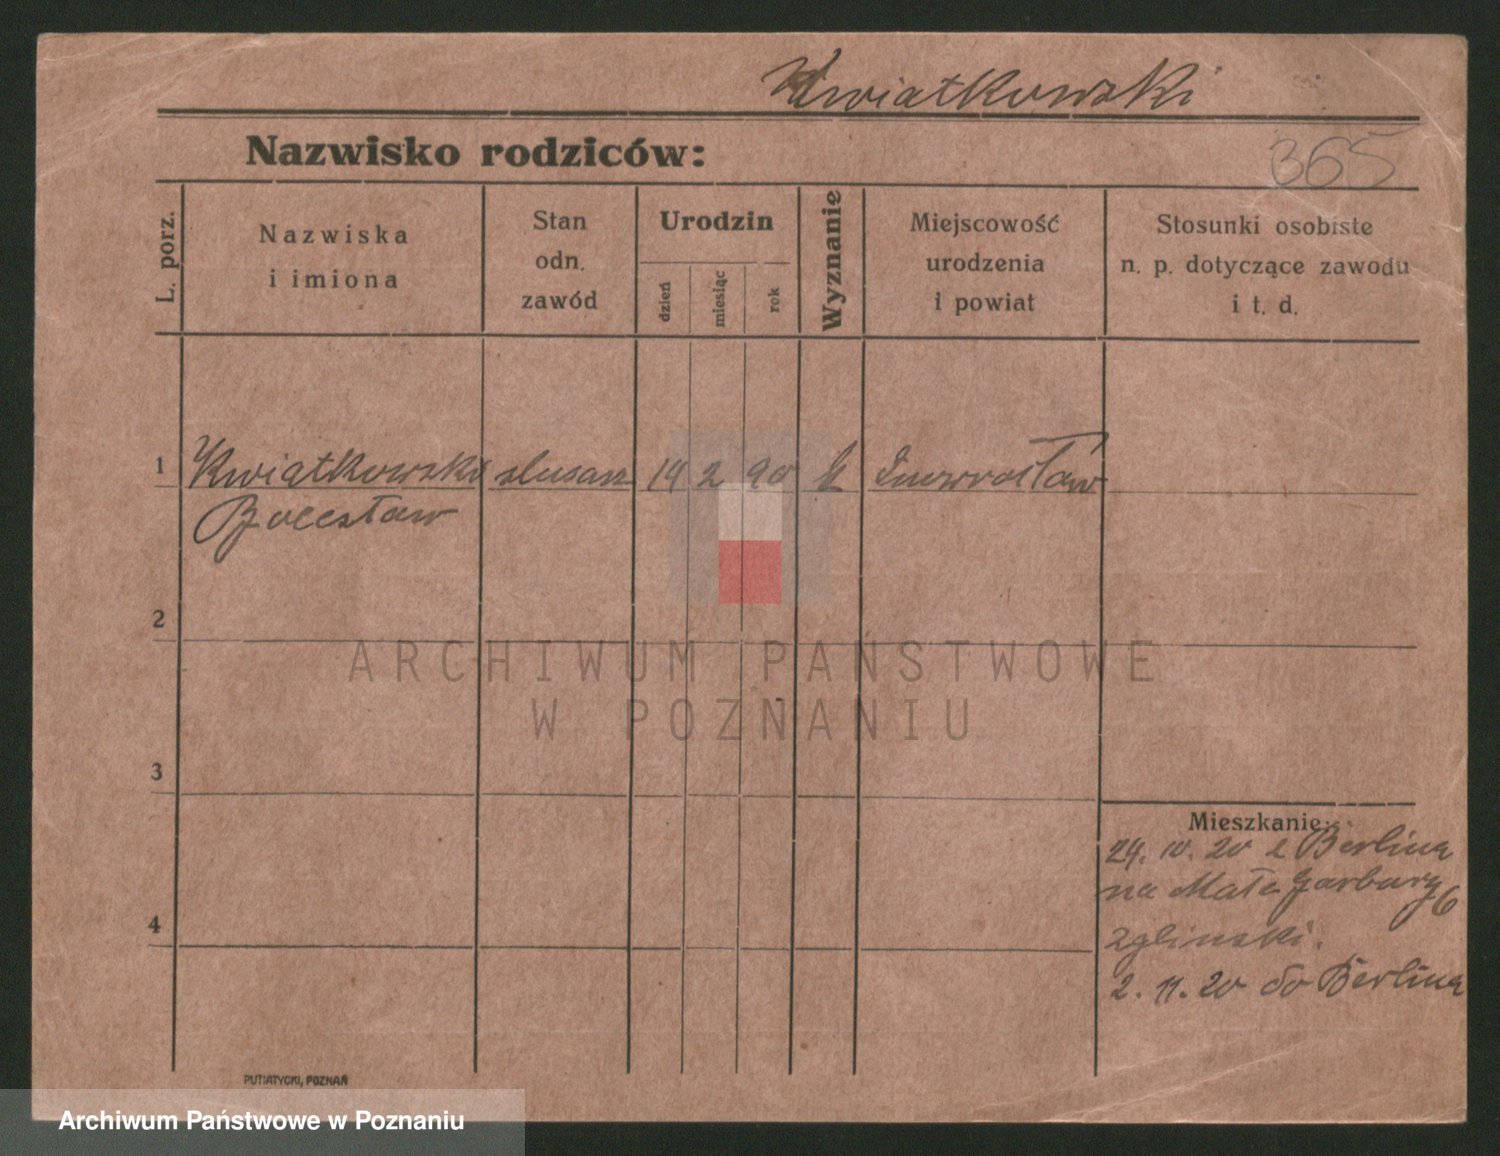 Kwiatkowski
Nazwisko rodziców:
365
L. porz.
Nazwiska
i imiona
Stan
odn.
zawód
Urodzin
dzień
miesiąc
rok
Wyznanie
Miejscowość
urodzenia
i powiat
Stosunki osobiste
n. p. dotyczące zawodu
i t. d.
1
Kwiatkowski
Bolesław
slusarz
14
2
90
k
Inowrocław
2
3
4
ARCHIWUM PAŃSTWOWE
W POZNANIU
Mieszkanie:
29. 10. 20 z Berlina
na Małe Garbary 6
Zglinski.
2. 11. 20 do Berlina
PUTIATYCKI, POZNAŃ
Archiwum Państwowe w Poznaniu